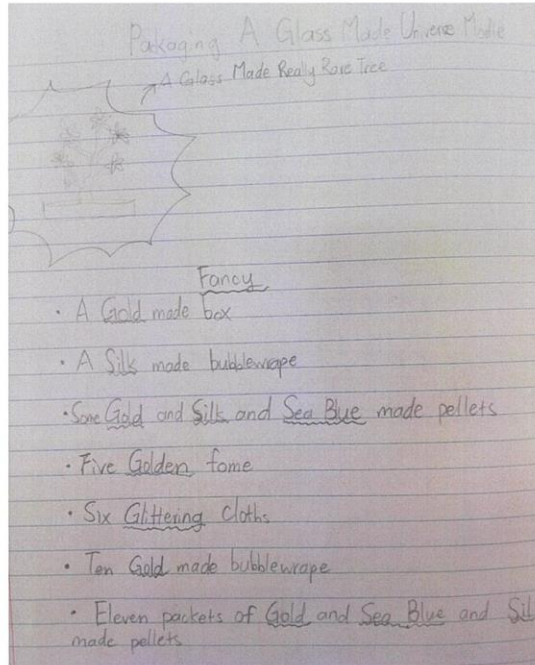 Pakaging A Glass Made Universe Modle
A Glass Made Really Rare Tree
Fancy
• A Gold made box
• A Silk made bubblewrape
• Some Gold and Silk and Sea Blue made pellets
• Five Golden fome
• Six Glittering cloths
• Ten Gold made bubblewrape
• Eleven packets of Gold and Sea Blue and Sil
made pellets